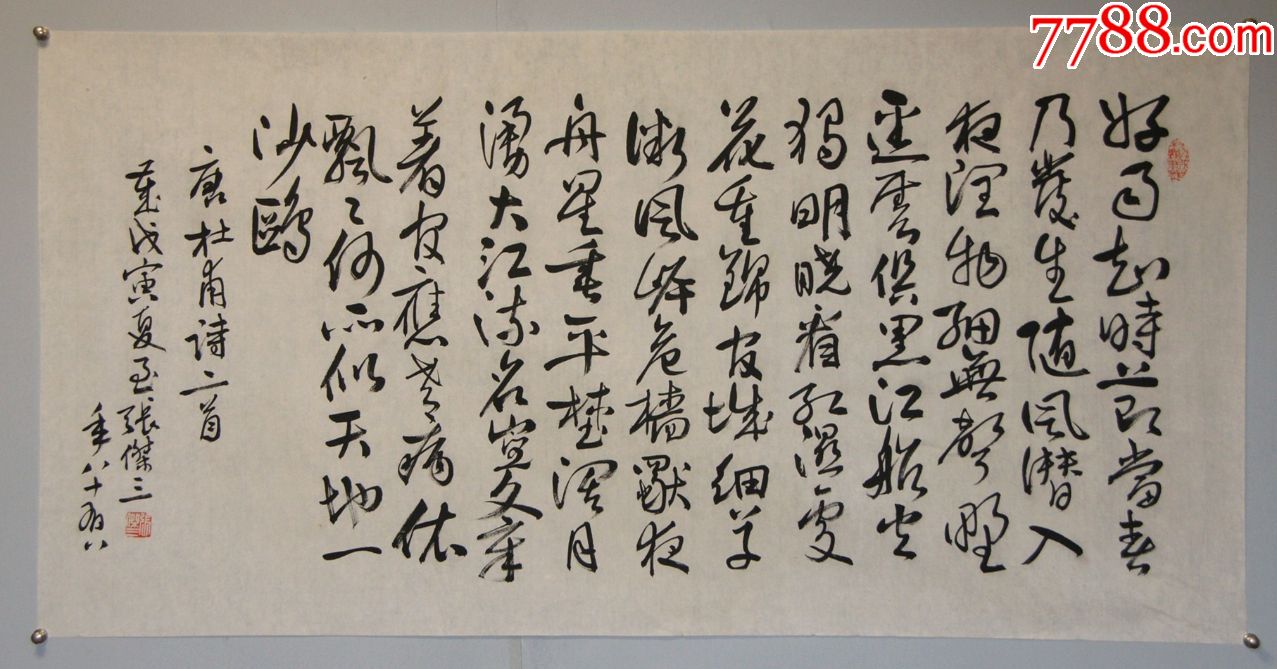 7788.com
好雨知時節當春
乃發生随風潛入
夜潤物細無聲野
逕雲俱黑江船火
獨明曉看紅濕處
花重錦官城細草
微風岸危檣獨夜
舟星垂平野闊月
湧大江流名豈文章
著官應老病休
飄〻何所似天地一
沙鷗
唐杜甫詩二首
歲戊寅夏至張傑三
年八十有八